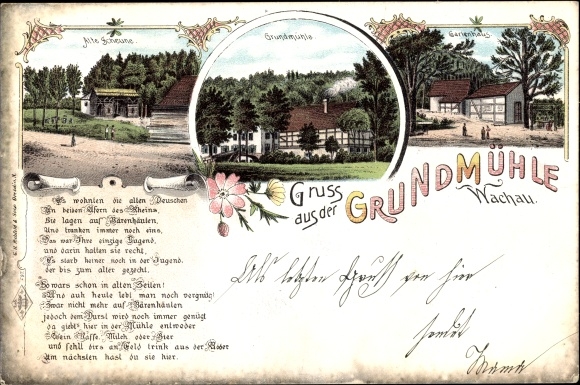 Alte Scheune.
Grundmühle.
Gartenhaus.
Gruss
aus der
GRUNDMÜHLE
Wachau.
Es wohnten die alten Deutschen
An beiden Ufern des Rheins,
Sie lagen auf Bärenhäuten
Und tranken immer noch eins,
Das war Ihre einzige Tugend,
und daran halten sie recht,
Es starb keiner noch in der Jugend,
der bis zum alter gezecht.
So wars schon in alten Zeiten!
Und auch heute lebt man noch vergnügt
Zwar nicht mehr auf Bärenhäuten
jedoch dem Durst wird noch immer genügt
da giebt's hier in der Mühle entweder
Wein Kaffe, Milch oder Bier
und fehlt dirs an Geld trink aus der Röder
Am nächsten hast du sie hier.
Als letzten Gruß von hier
sendet
Mama